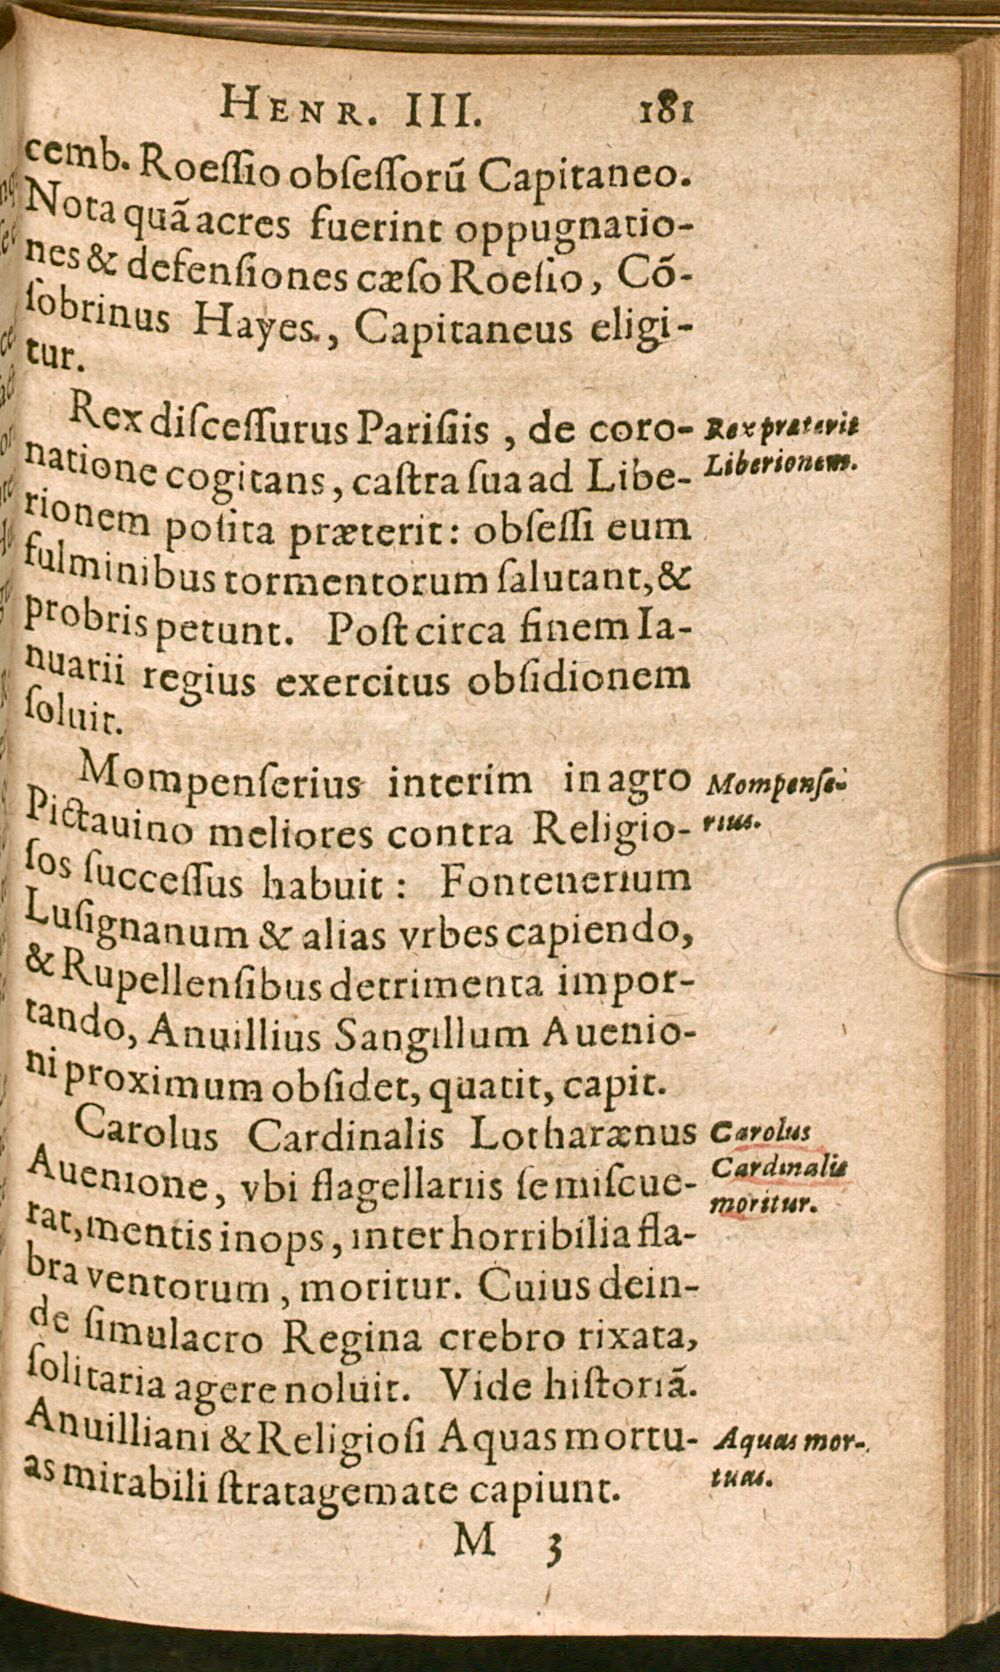 HENR. III. 181
cemb. Roeſſio obſeſſorũ Capitaneo.
Nota quã acres fuerint oppugnatio-
nes & defenſiones cæſo Roeſio, Cõ-
ſobrinus Hayes., Capitaneus eligi-
tur.
Rex diſceſſurus Pariſiis, de coro-
natione cogitans, caſtra ſua ad Libe-
rionem poſita præterit: obſeſſi eum
fulminibus tormentorum ſalutant, &
probris petunt. Poſt circa finem Ia-
nuarii regius exercitus obſidionem
ſoluit.
Rex præterit
Liberionem.
Mompenſerius interim in agro
Pictauino meliores contra Religio-
ſos ſucceſſus habuit: Fontenerium
Luſignanum & alias vrbes capiendo,
& Rupellenſibus detrimenta impor-
tando, Anuillius Sangillum Auenio-
ni proximum obſidet, quatit, capit.
Mompenſe-
rius.
Carolus Cardinalis Lotharænus
Auenione, vbi flagellariis ſe miſcue-
rat, mentis inops, inter horribilia fla-
bra ventorum, moritur. Cuius dein-
de ſimulacro Regina crebro rixata,
ſolitaria agere noluit. Vide hiſtoriã.
Anuilliani & Religioſi Aquas mortu-
as mirabili ſtratagemate capiunt.
Carolus
Cardinalis
moritur.
Aquas mor-
tuas.
M 3